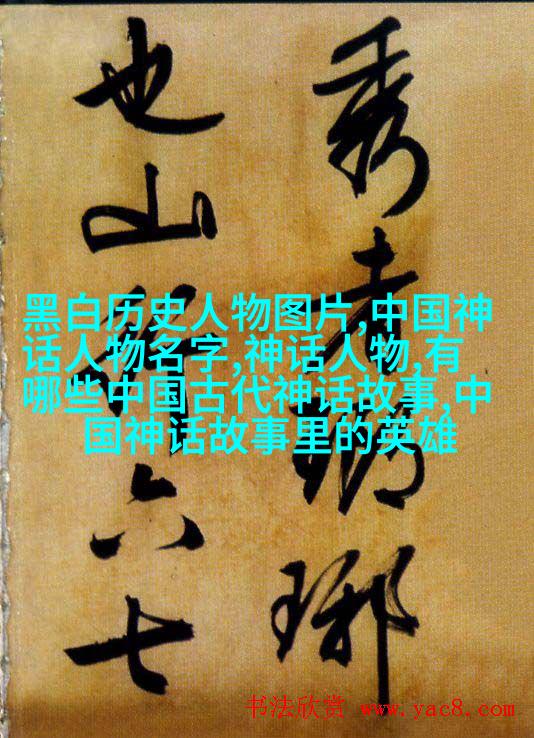 秀者瑯琊
也山行六七
黑白历史人物图片,中国神
话人物名字,神话人物,有
哪些中国古代神话故事,中
国神话故事里的英雄
书法欣赏 www.yac8.com